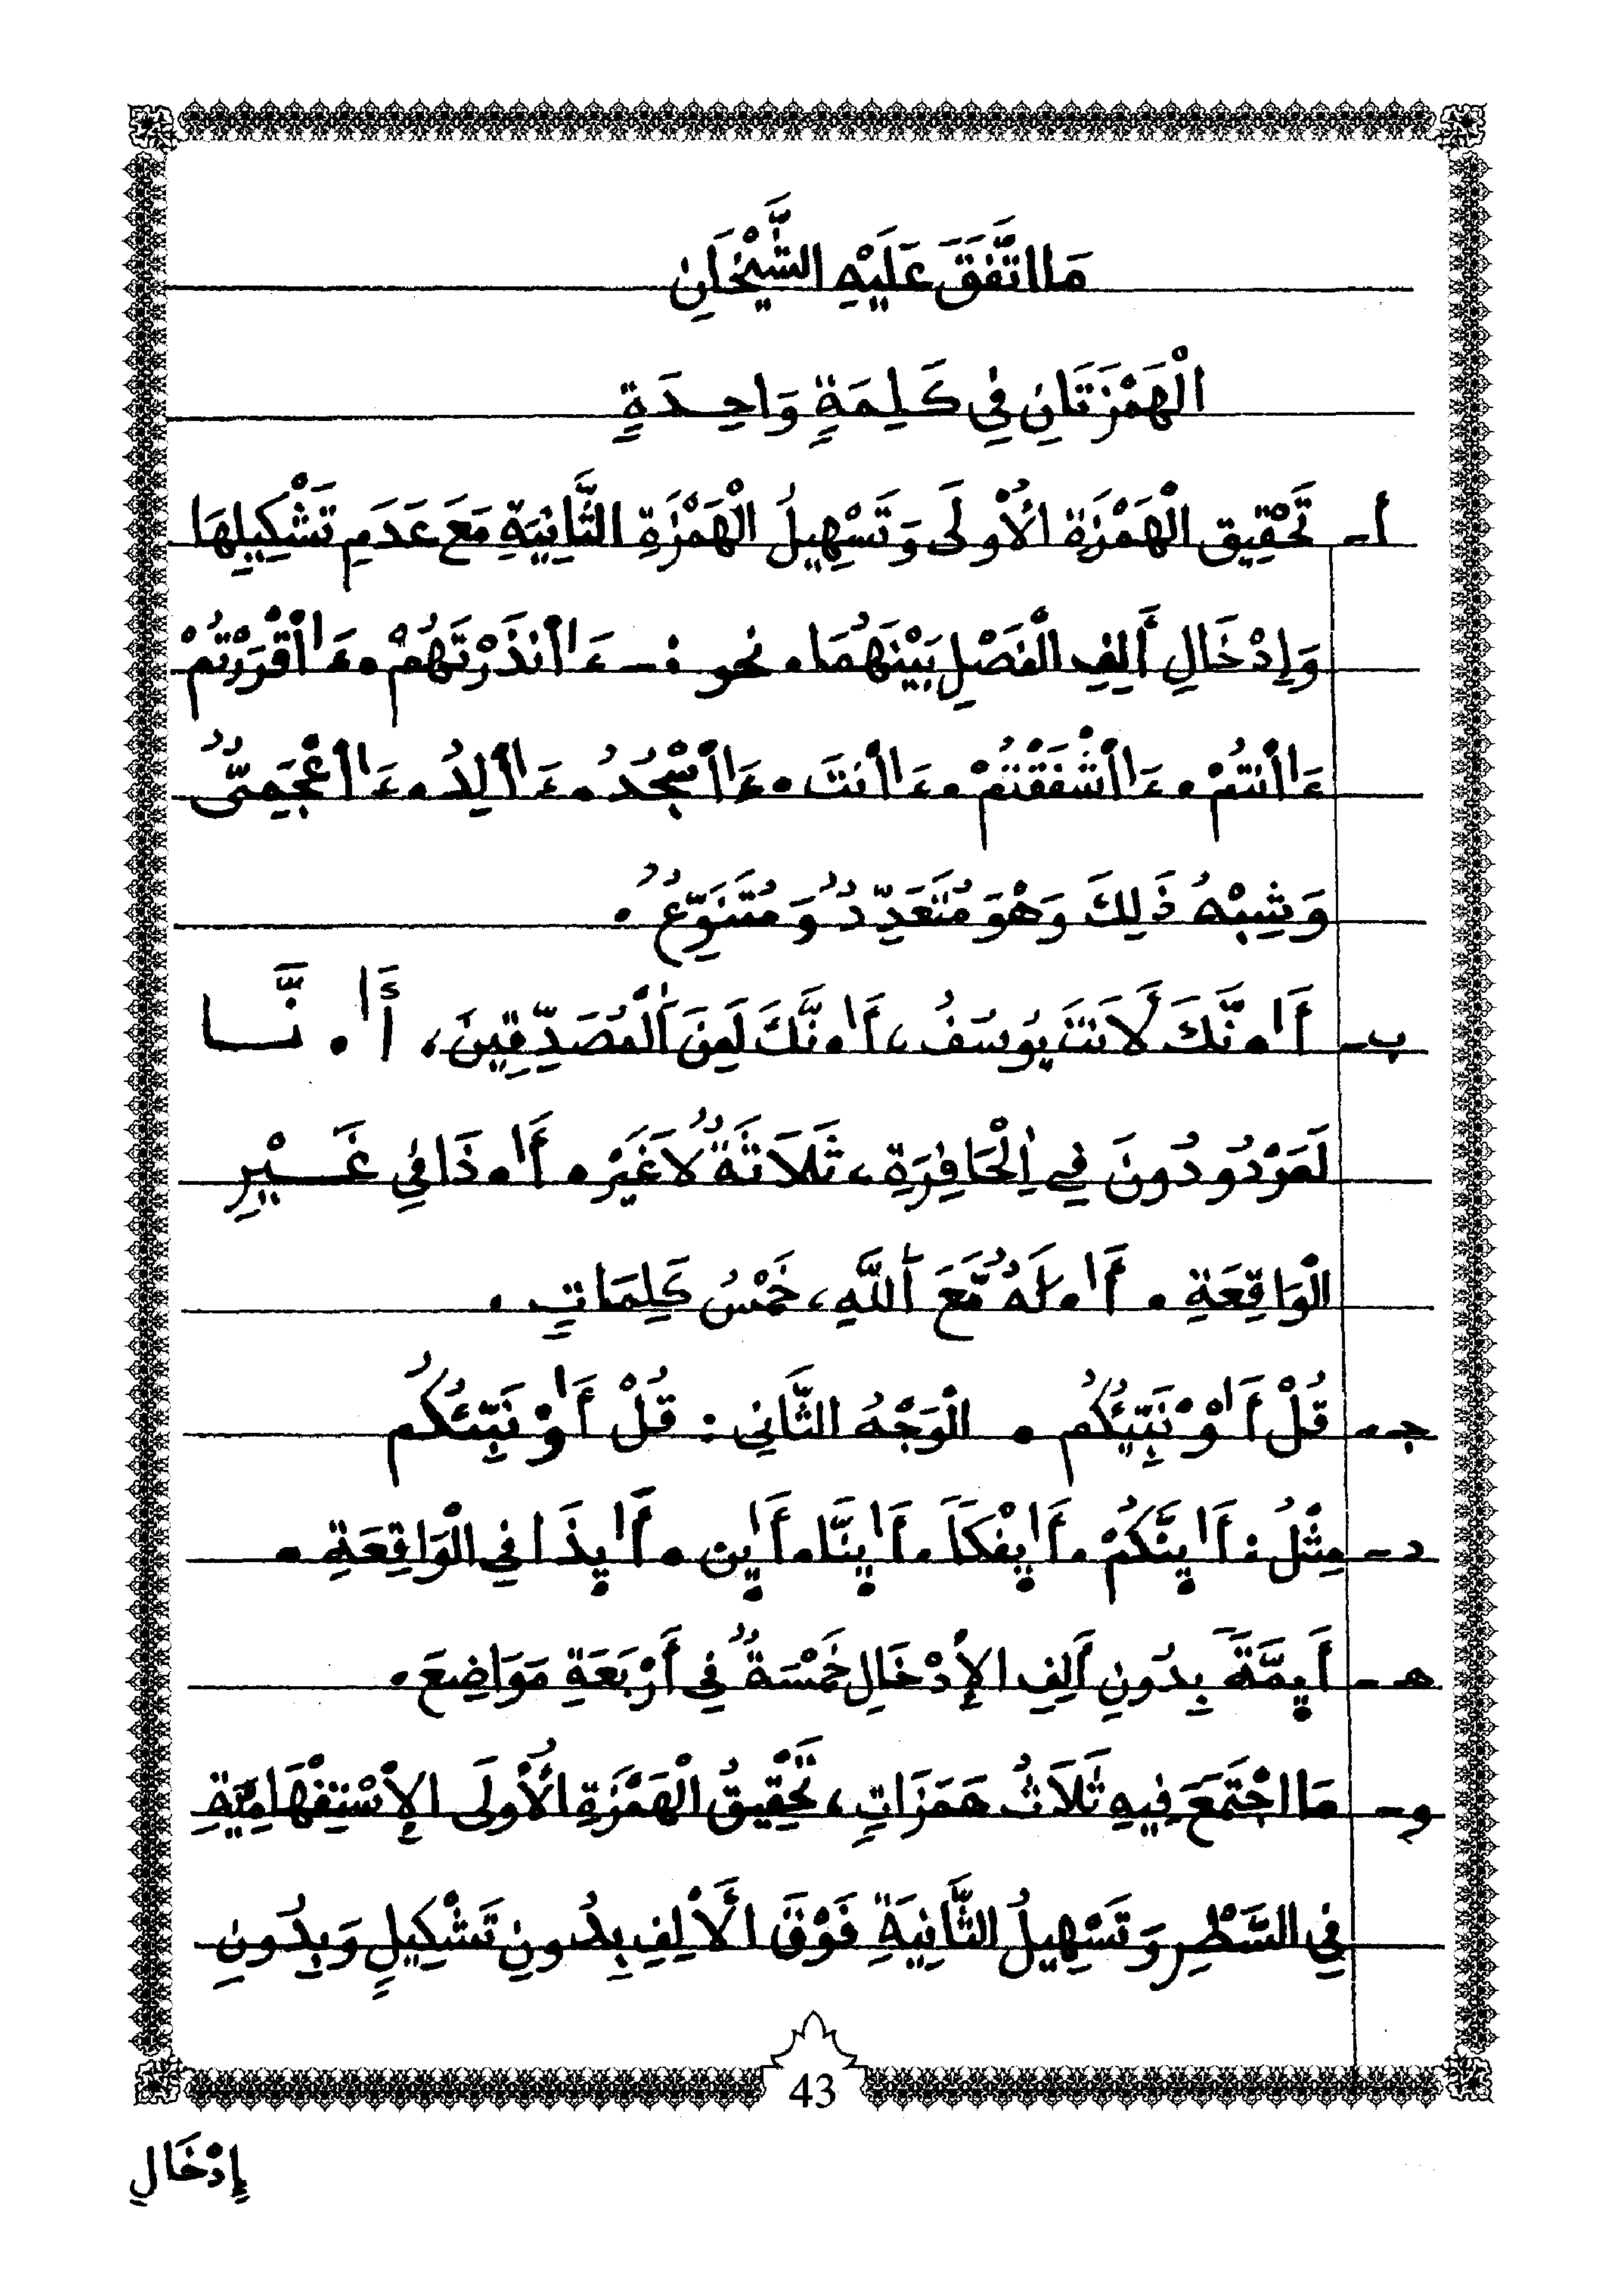 مَا اتَّفَقَ عَلَيْهِ الشَّيْخَانِ
الْهَمْزَتَانِ فِي كَلِمَةٍ وَاحِدَةٍ
أ- تَحْقِيق الْهَمْزَة الأُولَى وَتَسْهِيلُ الْهَمْزَةِ الثَّانِيَةِ مَعَ عَدَمِ تَشْكِيلِهَا
وَإِدْخَالِ أَلِفِ الْفَصْلِ بَيْنَهُمَا. نحو :- ءَا۬انذَرْتَهُمْ. ءَا۬اقْرَرْتُمْ
ءَا۬انتُمْ. ءَا۬اشْفَقْتُمْ. ءَا۬انتَ. ءَا۬اسْجُدُ. ءَا۬الِدُ. ءَا۬اعْجَمِىٌّ
وَشِبْهُ ذَلِكَ وَهْوَ مُتَعَدِّدٌ وَمُتَنَوِّعٌ.
ب- أَا۟.نَّكَ لَأَنتَ يُوسُفُ، أَا.نَّكَ لَمِنَ اَلْمُصَدِّقِينَ، أَا.نَّا
لَمَرْدُودُونَ فِي اِلْحَافِرَةِ، ثَلَاثَةٌ لَا غَيْرُ. أَا.ذَا فِي غَيْرِ
الْوَاقِعَةِ. أَا.لَهٌ مَّعَ اَللَّهِ، خَمْسُ كَلِمَاتٍ.
جـ- قُلْ أَاوْ۬نَبِّئُكُم. الْوَجْهُ الثَّانِي: قُلْ أَاوْ۬نَبِّئُكُم
د- مِثْلُ: أَايِنَّكُمْ. أَايِفْكاً. أَايِنَّا. أَايِن. أَايِذَا فِي الْوَاقِعَةِ.
هـ- أَيِمَّةَ بِدُونِ أَلِفِ الإِدْخَالِ خَمْسَةٌ فِي أَرْبَعَةِ مَوَاضِعَ.
و- مَا اجْتَمَعَ فِيهِ ثَلَاثُ هَمَزَاتٍ، تَحْقِيقُ الْهَمْزَةِ الأُولَى الإِسْتِفْهَامِيَّةِ
فِي السَّطْرِ وَتَسْهِيلُ الثَّانِيَةِ فَوْقَ الأَلِفِ بِدُونِ تَشْكِيلٍ وَبِدُونِ
43
إِدْخَالِ